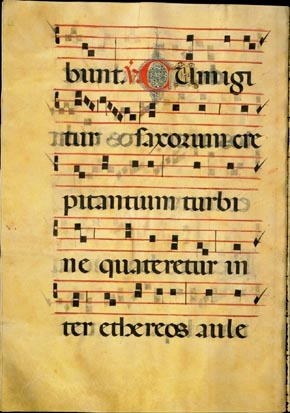 bunt. V CUmigi
tur saxorum cre
pitantium turbi
ne quateretur in
ter ethereos aule